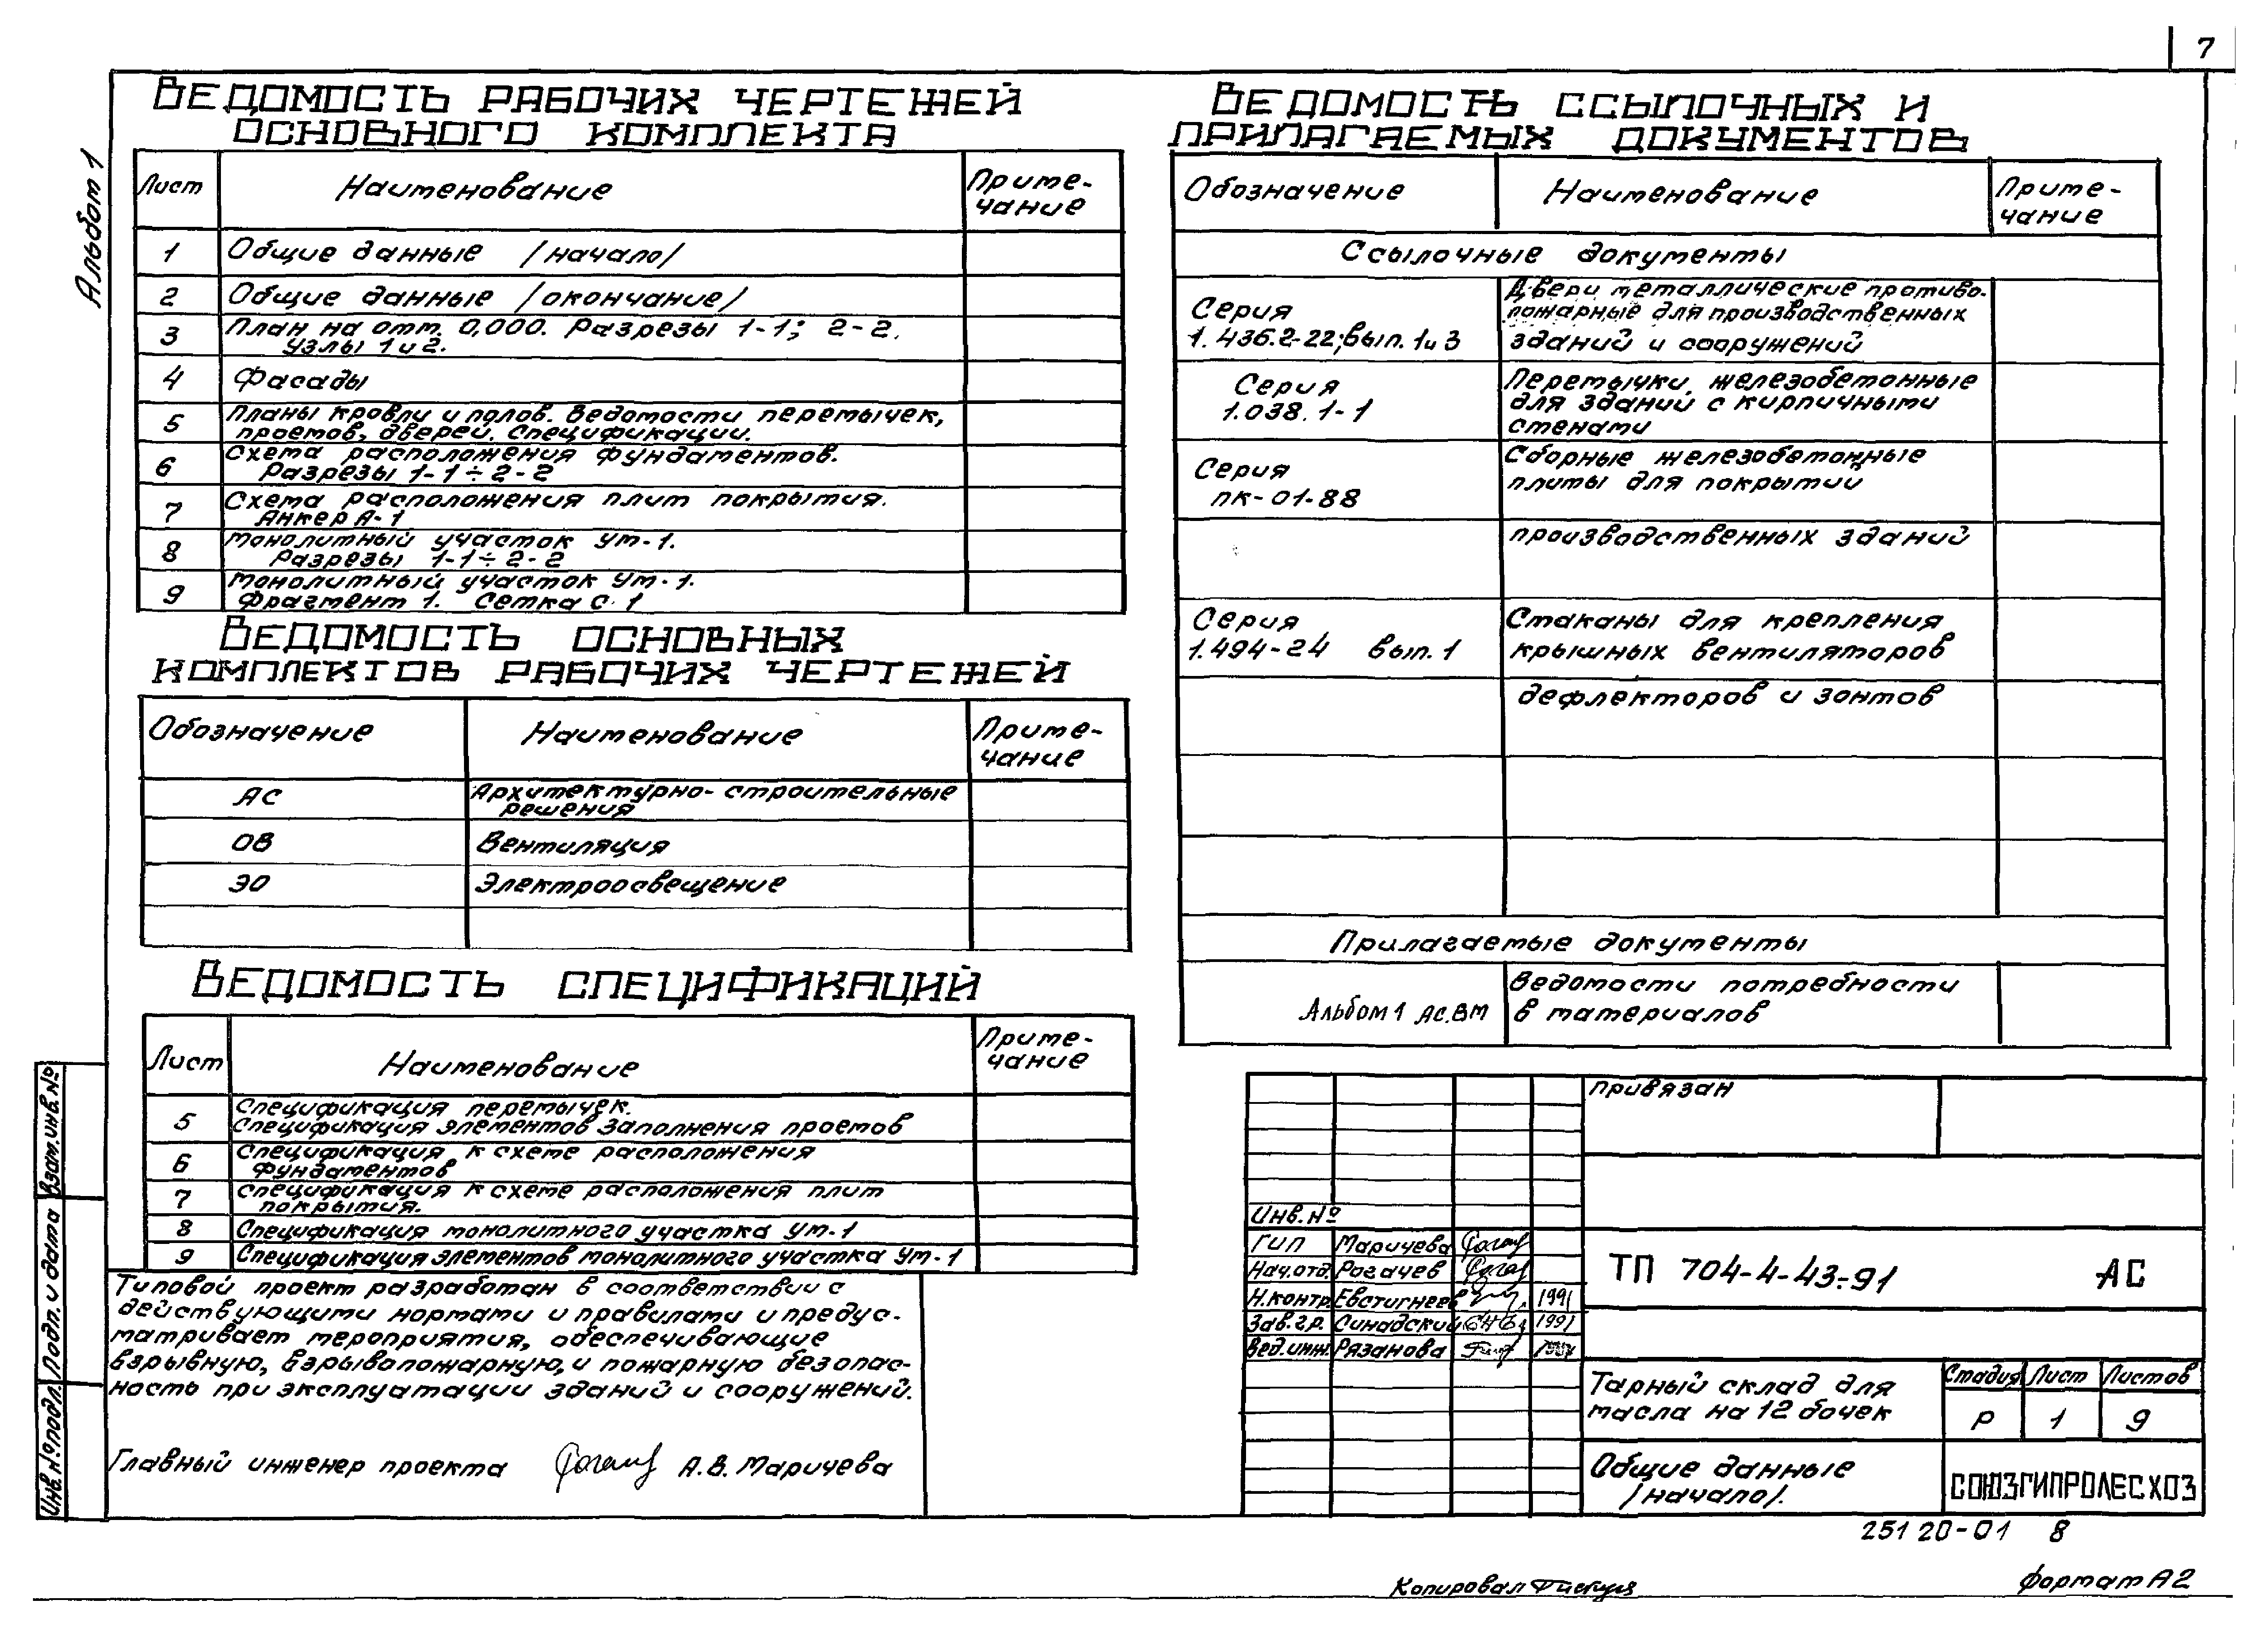 7
Альбом 1
Ведомость рабочих чертежей
основного комплекта
Лист Наименование Приме-
чание
1 Общие данные /начало/
2 Общие данные /окончание/
3 План на отм. 0,000. Разрезы 1-1; 2-2.
Узлы 1 и 2.
4 Фасады
5 Планы кровли и полов. Ведомости перемычек,
проемов, дверей. Спецификации.
6 Схема расположения фундаментов.
Разрезы 1-1÷2-2
7 Схема расположения плит покрытия.
Анкер А-1
8 Монолитный участок Ум-1.
Разрезы 1-1÷2-2
9 Монолитный участок Ум-1.
Фрагмент 1. Сетка С-1
Ведомость основных
комплектов рабочих чертежей
Обозначение Наименование Приме-
чание
АС Архитектурно-строительные
решения
ОВ Вентиляция
ЭО Электроосвещение
Ведомость спецификаций
Лист Наименование Приме-
чание
5 Спецификация перемычек.
Спецификация элементов заполнения проемов
6 Спецификация к схеме расположения
фундаментов
7 Спецификация к схеме расположения плит
покрытия.
8 Спецификация монолитного участка Ум-1
9 Спецификация элементов монолитного участка Ум-1
Типовой проект разработан в соответствии с
действующими нормами и правилами и предус-
матривает мероприятия, обеспечивающие
взрывную, взрывопожарную, и пожарную безопас-
ность при эксплуатации зданий и сооружений.
Главный инженер проекта А.В. Маричева
Ведомость ссылочных и
прилагаемых документов
Обозначение Наименование Приме-
чание
Ссылочные документы
Серия
1.436.2-22; вып. 1 и 3
Двери металлические противо-
пожарные для производственных
зданий и сооружений
Серия
1.038.1-1
Перемычки железобетонные
для зданий с кирпичными
стенами
Серия
пк-01-88
Сборные железобетонные
плиты для покрытий
производственных зданий
Серия
1.494-24 вып. 1
Стаканы для крепления
крышных вентиляторов
дефлекторов и зонтов
Прилагаемые документы
Альбом 1 АС.ВМ
Ведомости потребности
в материалов
Привязан
Инв.№
ГИП Маричева
Нач.отд. Рогачев
Н.контр. Евстигнеев 1991
Зав.гр. Синадский 1991
Вед.инж. Рязанова
ТП 704-4-43-91 АС
Тарный склад для
масла на 12 бочек
Стадия Лист Листов
Р 1 9
Общие данные
/начало/.
СОЮЗГИПРОЛЕСХОЗ
25120-01 8
Копировал
Формат А2
Взам.инв.№
Подп. и дата
Инв.№ подл.